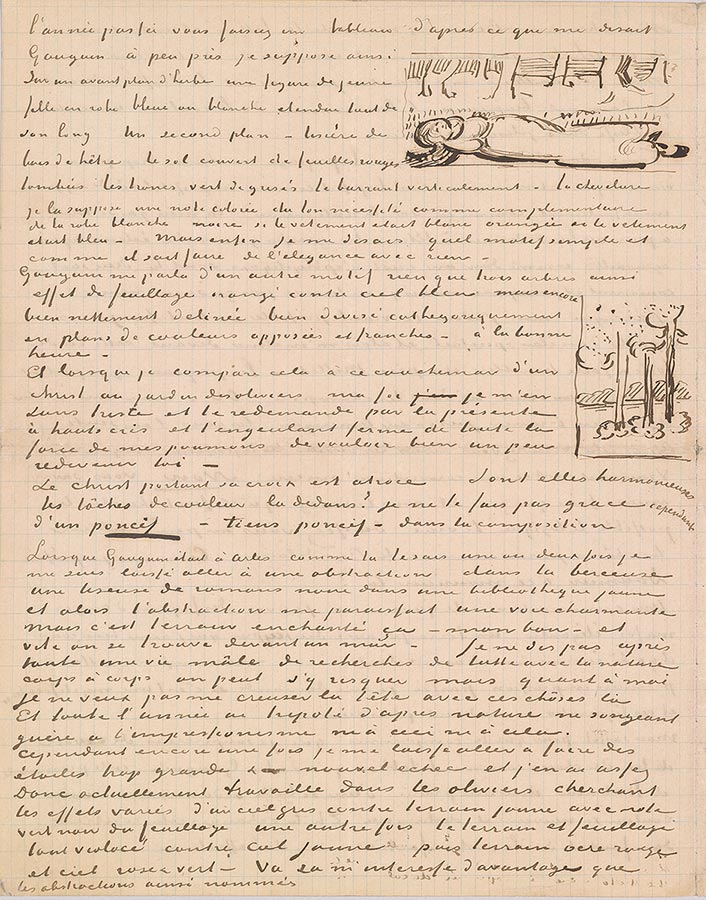 l'année passée vous faisiez un tableau d'apres ce que me disait
Gauguin à peu près je suppose ainsi
Sur un avant plan d'herbe une figure de jeune
fille en robe bleue ou blanche etendue tout de
son long Un second plan – lisière de
bois de hêtre le sol couvert de feuilles rouges
tombées les troncs vert de grisés le barrant verticalement – la chevelure
je la suppose une note colorée du ton nécessité comme complementaire
de la robe blanche noire si le vetement etait blanc orangée si le vetement
etait bleu – Mais enfin je me disais quel motif simple et
comme il sait faire de l'elegance avec rien –
Gauguin me parla d'un autre motif rien que trois arbres ainsi
effet de feuillage orangé contre ciel bleu mais encore
bien nettement delinée bien divisé cathegoriquement
en plans de couleurs opposées et franches – à la bonne
heure –
Et lorsque je compare cela à ce cauchemar d'un
Christ au jardin des oliviers ma foi je m'en
sens triste et te redemande par la présente
à hauts cris et t'engeulant ferme de toute la
force de mes poumons de vouloir bien un peu
redevenir toi –
Le Christ portant sa croix est atroce Sont elles harmonieuses
les tâches de couleur la dedans? je ne te fais pas grace cependant
d'un poncif – tiens poncif – dans la composition
Lorsque Gauguin était à Arles comme tu le sais une ou deux fois je
me suis laissé aller à une abstraction dans la berceuse
une liseuse de romans noire dans une bibliotheque jaune
et alors l'abstraction me paraissait une voie charmante
mais c'est terrain enchanté ça – mon bon – et
vite on se trouve devant un mur – Je ne dis pas après
toute une vie mâle de recherches de lutte avec la nature
corps à corps on peut s'y risquer mais quant à moi
je ne veux pas me creuser la tête avec ces choses là
Et toute l'année ai tripoté d'apres nature ne songeant
guère à l'impressionisme ni à ceci ni à cela.
cependant encore une fois je me laisse aller à faire des
étoiles trop grande &– nouvel echec et j'en ai assez
Donc actuellement travaille dans les oliviers cherchant
les effets variés d'un ciel gris contre terrain jaune avec note
vert noir du feuillage une autre fois le terrain et feuillage
tout violacé contre ciel jaune puis terrain ocre rouge
et ciel rose &vert – Va ça m'interesse davantage que
les abstractions ainsi nommées